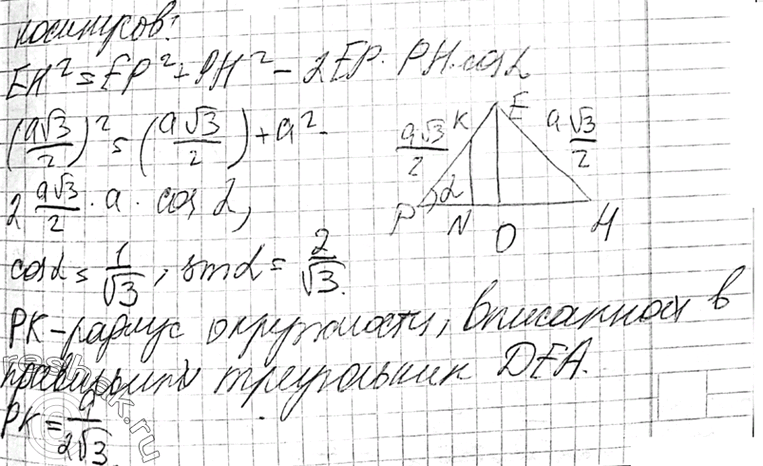 косинусов:
EH² = EP² + PH² - 2EP · PH · cos α
(a√3/2)² = (a√3/2) + a² -
2 a√3/2 · a · cos α,
cos α = 1/√3, sin α = 2/√3.
PK - радиус окружности, вписанной в
правильный треугольник DEA.
PK = a/2√3
a√3/2 K E a√3/2
P α N O H
reshak.ru